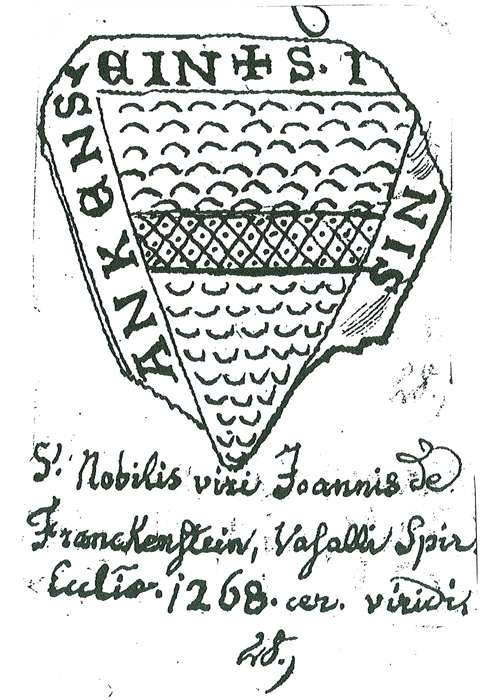 EIN ✠ S. I
NIS
ANKENS
S. Nobilis viri Joannis de
Franckenstein, Vasalli Spir.
Ecclio. 1268. cer. viridi,
28,
28,